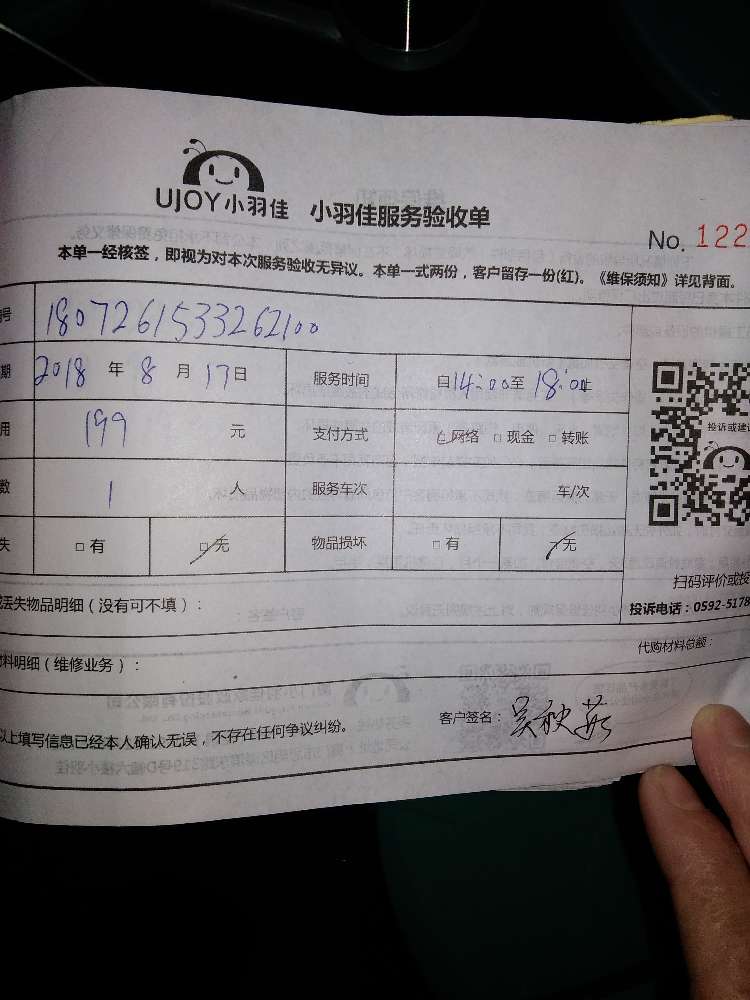 UJOY小羽佳 小羽佳服务验收单
No. 122
本单一经核签，即视为对本次服务验收无异议。本单一式两份，客户留存一份(红)。《维保须知》详见背面。
号 1807261533262100
期 2018 年 8 月 17日 服务时间 自14:00至 18:00止
用 199 元 支付方式 □网络 □现金 □转账
数 1 人 服务车次 车/次
失 □有 □无 物品损坏 □有 □无
投诉或建议
扫码评价或投
投诉电话：0592-5178
丢失物品明细（没有可不填）：
料明细（维修业务）：
代购材料总额：
以上填写信息已经本人确认无误，不存在任何争议纠纷。
客户签名：吴秧茹